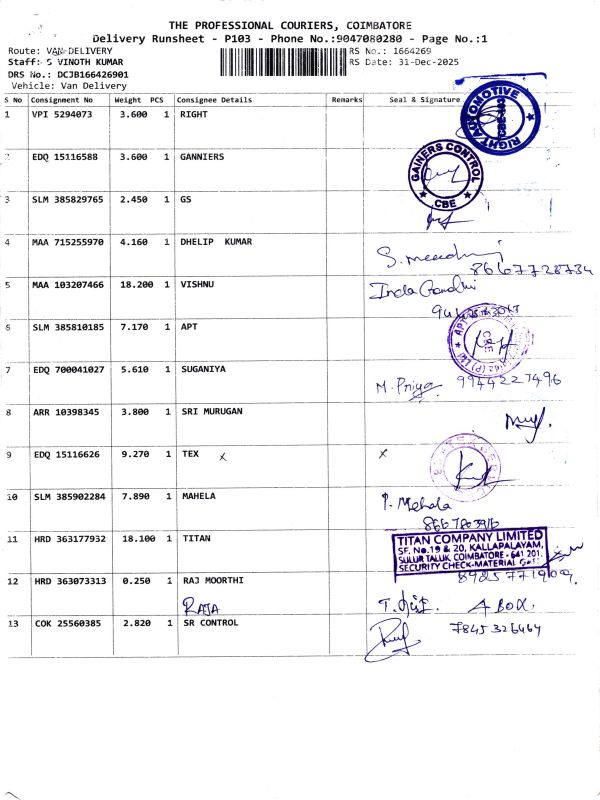 THE PROFESSIONAL COURIERS, COIMBATORE
Delivery Runsheet - P103 - Phone No.:9047080280 - Page No.:1
Route: VAN-DELIVERY
RS No.: 1664269
Staff: S VINOTH KUMAR
RS Date: 31-Dec-2025
DRS No.: DCJB166426901
Vehicle: Van Delivery
S No Consignment No Weight PCS Consignee Details Remarks Seal & Signature
1 VPI 5294073 3.600 1 RIGHT
RIGHT AUTOMOTIVE
2 EDQ 15116588 3.600 1 GANNIERS
GAINERS CONTROL
CBE
3 SLM 385829765 2.450 1 GS
4 MAA 715255970 4.160 1 DHELIP KUMAR
8667728734
5 MAA 103207466 18.200 1 VISHNU
6 SLM 385810185 7.170 1 APT
CBE
7 EDQ 700041027 5.610 1 SUGANIYA
M. Priya 9944227496
8 ARR 10398345 3.800 1 SRI MURUGAN
9 EDQ 15116626 9.270 1 TEX x x
10 SLM 385902284 7.890 1 MAHELA
P. Mehala
11 HRD 363177932 18.100 1 TITAN
TITAN COMPANY LIMITED
SF. No.19 & 20, KALLAPALAYAM,
SULUR TALUK, COIMBATORE - 641 201.
SECURITY CHECK-MATERIAL
12 HRD 363073313 0.250 1 RAJ MOORTHI
RAJA
A BOX.
13 COK 25560385 2.820 1 SR CONTROL
7845326464